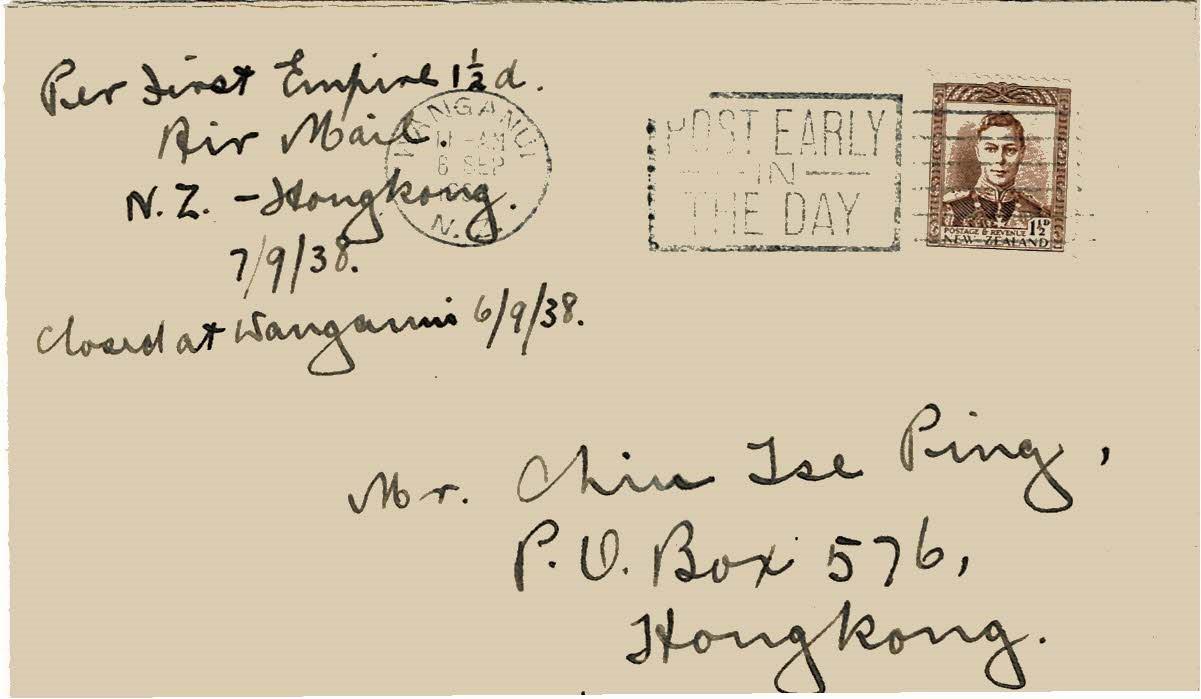 Per First Empire 1½d.
Air Mail.
N.Z. - Hongkong.
7/9/38.
Closed at Wanganui 6/9/38.
WANGANUI
11 - AM
6 SEP
N.Z.
POST EARLY
IN
THE DAY
POSTAGE & REVENUE
1½D
NEW ZEALAND
Mr. Chiu Tse Ping,
P.O. Box 576,
Hongkong.